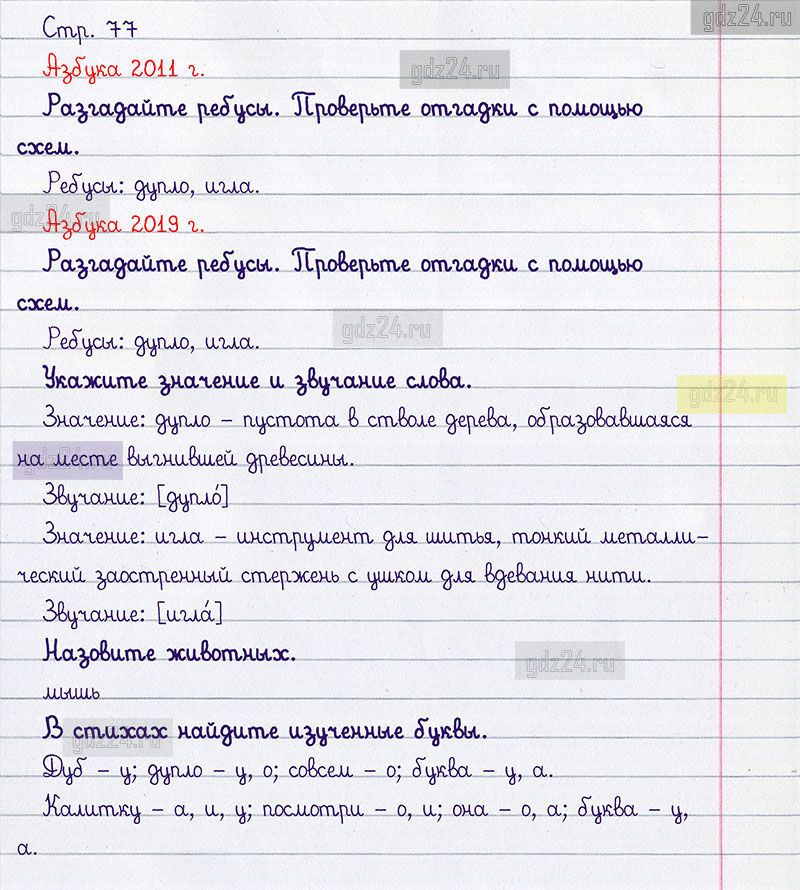 gdz24.ru
Стр. 77
Азбука 2011 г.
gdz24.ru
Разгадайте ребусы. Проверьте отгадки с помощью
схем.
Ребусы: дупло, игла.
gdz24.ru
Азбука 2019 г.
Разгадайте ребусы. Проверьте отгадки с помощью
схем.
gdz24.ru
Ребусы: дупло, игла.
Укажите значение и звучание слова.
gdz24.ru
Значение: дупло – пустота в стволе дерева, образовавшаяся
gdz24.ru
на месте выгнившей древесины.
Звучание: [дупло́]
Значение: игла – инструмент для шитья, тонкий металли–
ческий заостренный стержень с ушком для вдевания нити.
Звучание: [игла́]
Назовите животных.
gdz24.ru
мышь
В стихах найдите изученные буквы.
gdz24.ru
Дуб – у; дупло – у, о; совсем – о; буква – у, а.
Калитку – а, и, у; посмотри – о, и; она – о, а; буква – у,
а.